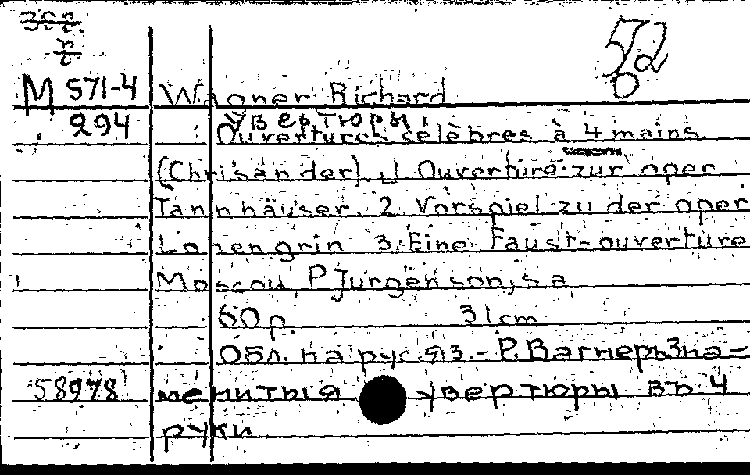 52
М 571-4 Wagner Richard
Увертюры.
294 Ouvertures célèbres à 4 mains
(Chrisander). 1. Ouverture zur oper
Tannhäuser. 2. Vorspiel zu der oper
Lohengrin 3. Eine Faust-ouverture
Moscou, P. Jurgenson, s.a.
60 p. 31cm
Обл. на рус. яз. - Р. Вагнеръ. Зна=
58978 менитыя увертюры въ 4
руки